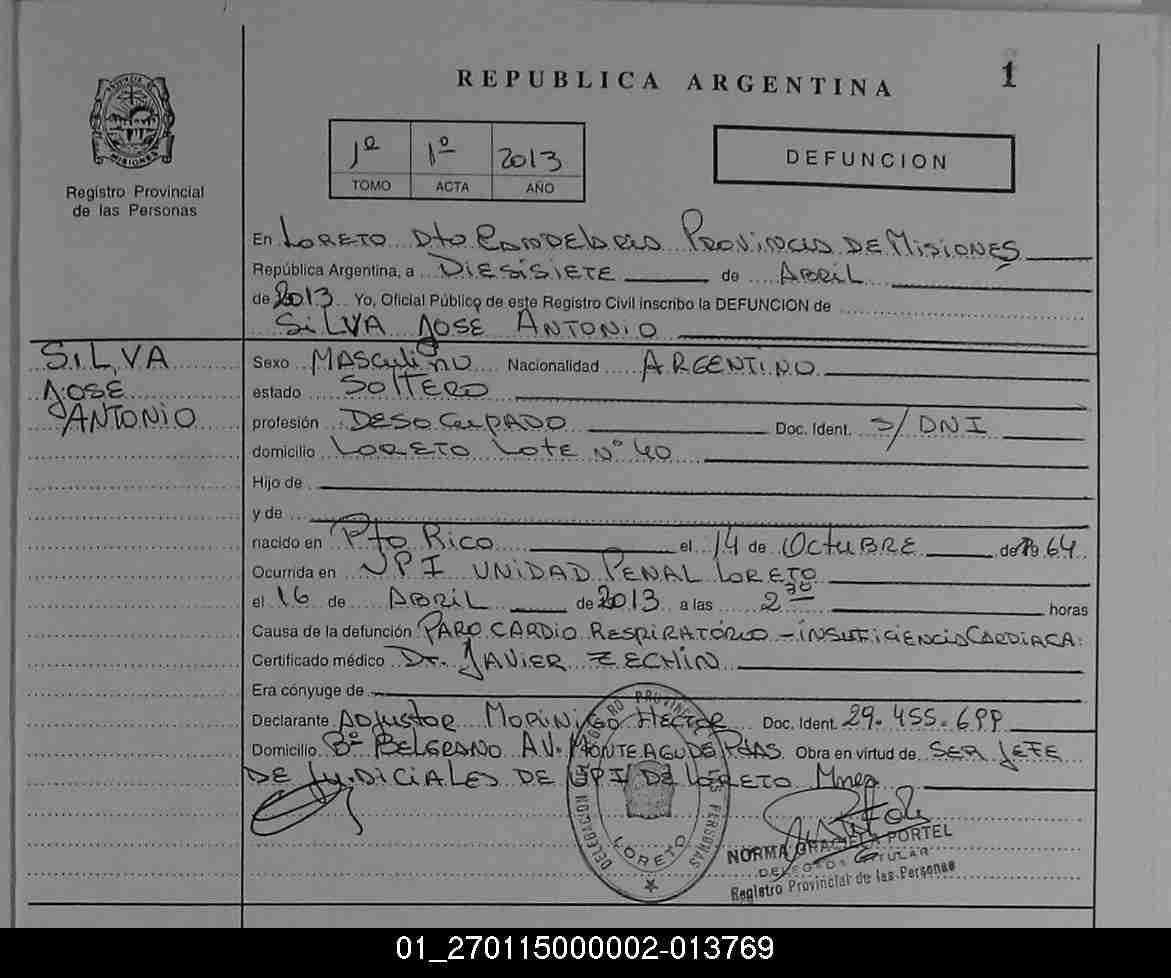 REPUBLICA ARGENTINA
1
MISIONES
Registro Provincial
de las Personas
1º 1º 2013
TOMO ACTA AÑO
DEFUNCION
En LORETO Dto CANDELARIA PROVINCIA DE MISIONES
República Argentina, a DIESISIETE de ABRIL
de 2013 Yo, Oficial Público de este Registro Civil inscribo la DEFUNCION de
SILVA JOSE ANTONIO
SILVA
JOSE
ANTONIO
Sexo MASCULINO Nacionalidad ARGENTINO
estado SOLTERO
profesión DESOCUPADO Doc. Ident. S/DNI
domicilio LORETO LOTE Nº 40
Hijo de
y de
nacido en Pto RICO el 14 de OCTUBRE de 1964
Ocurrida en UPI UNIDAD PENAL LORETO
el 16 de ABRIL de 2013 a las 2 30 horas
Causa de la defunción PARO CARDIO RESPIRATORIO - INSUFICIENCIA CARDIACA
Certificado médico Dr. JAVIER ZECHIN
Era cónyuge de
Declarante ADJUSTOR MORINIGO HECTOR Doc. Ident. 29.455.699
Domicilio Bº BELGRANO AV. MONTEAGUDE Pdas Obra en virtud de SER JEFE
DE JUDICIALES DE UPI DE LORETO Mnes
REGISTRO PROVINCIAL DE LAS PERSONAS
DELEGACION
LORETO
NORMA GRACIELA PORTEL
DELEGADA TITULAR
Registro Provincial de las Personas
01_270115000002-013769